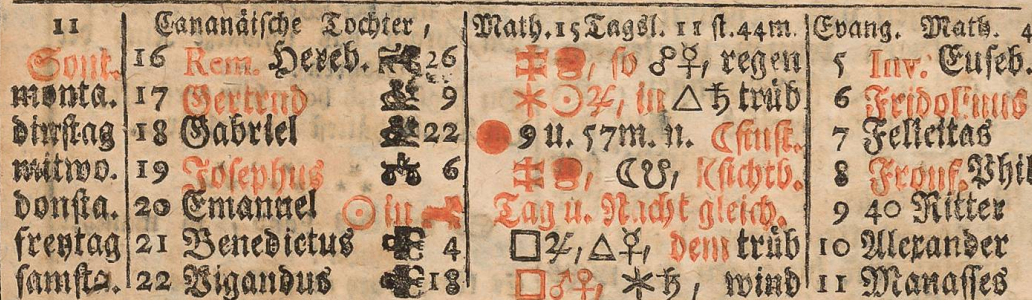 11 Cananäische Tochter, Math. 15 Tagsl. 11 st. 44m. Evang. Math. 4
Sont. 16 Rem. Hereb. 26 ⚹, so ☌☿, regen 5 Inv. Euseb.
monta. 17 Gertrud 9 ⚹☉♃, in △♄ trüb 6 Fridolinus
dinstag 18 Gabriel 22 9 u. 57m. n. ☾finst. 7 Felicitas
mitwo. 19 Josephus 6 ☾☋, sichtb. 8 Fronf. Phil
donsta. 20 Emanuel ☉ in Tag u. Nacht gleich. 9 40 Ritter
freytag 21 Benedictus 4 □♃, △☿, dem trüb 10 Alexander
samsta. 22 Vigandus 18 □♂☿, ⚹♄, wind 11 Manasses